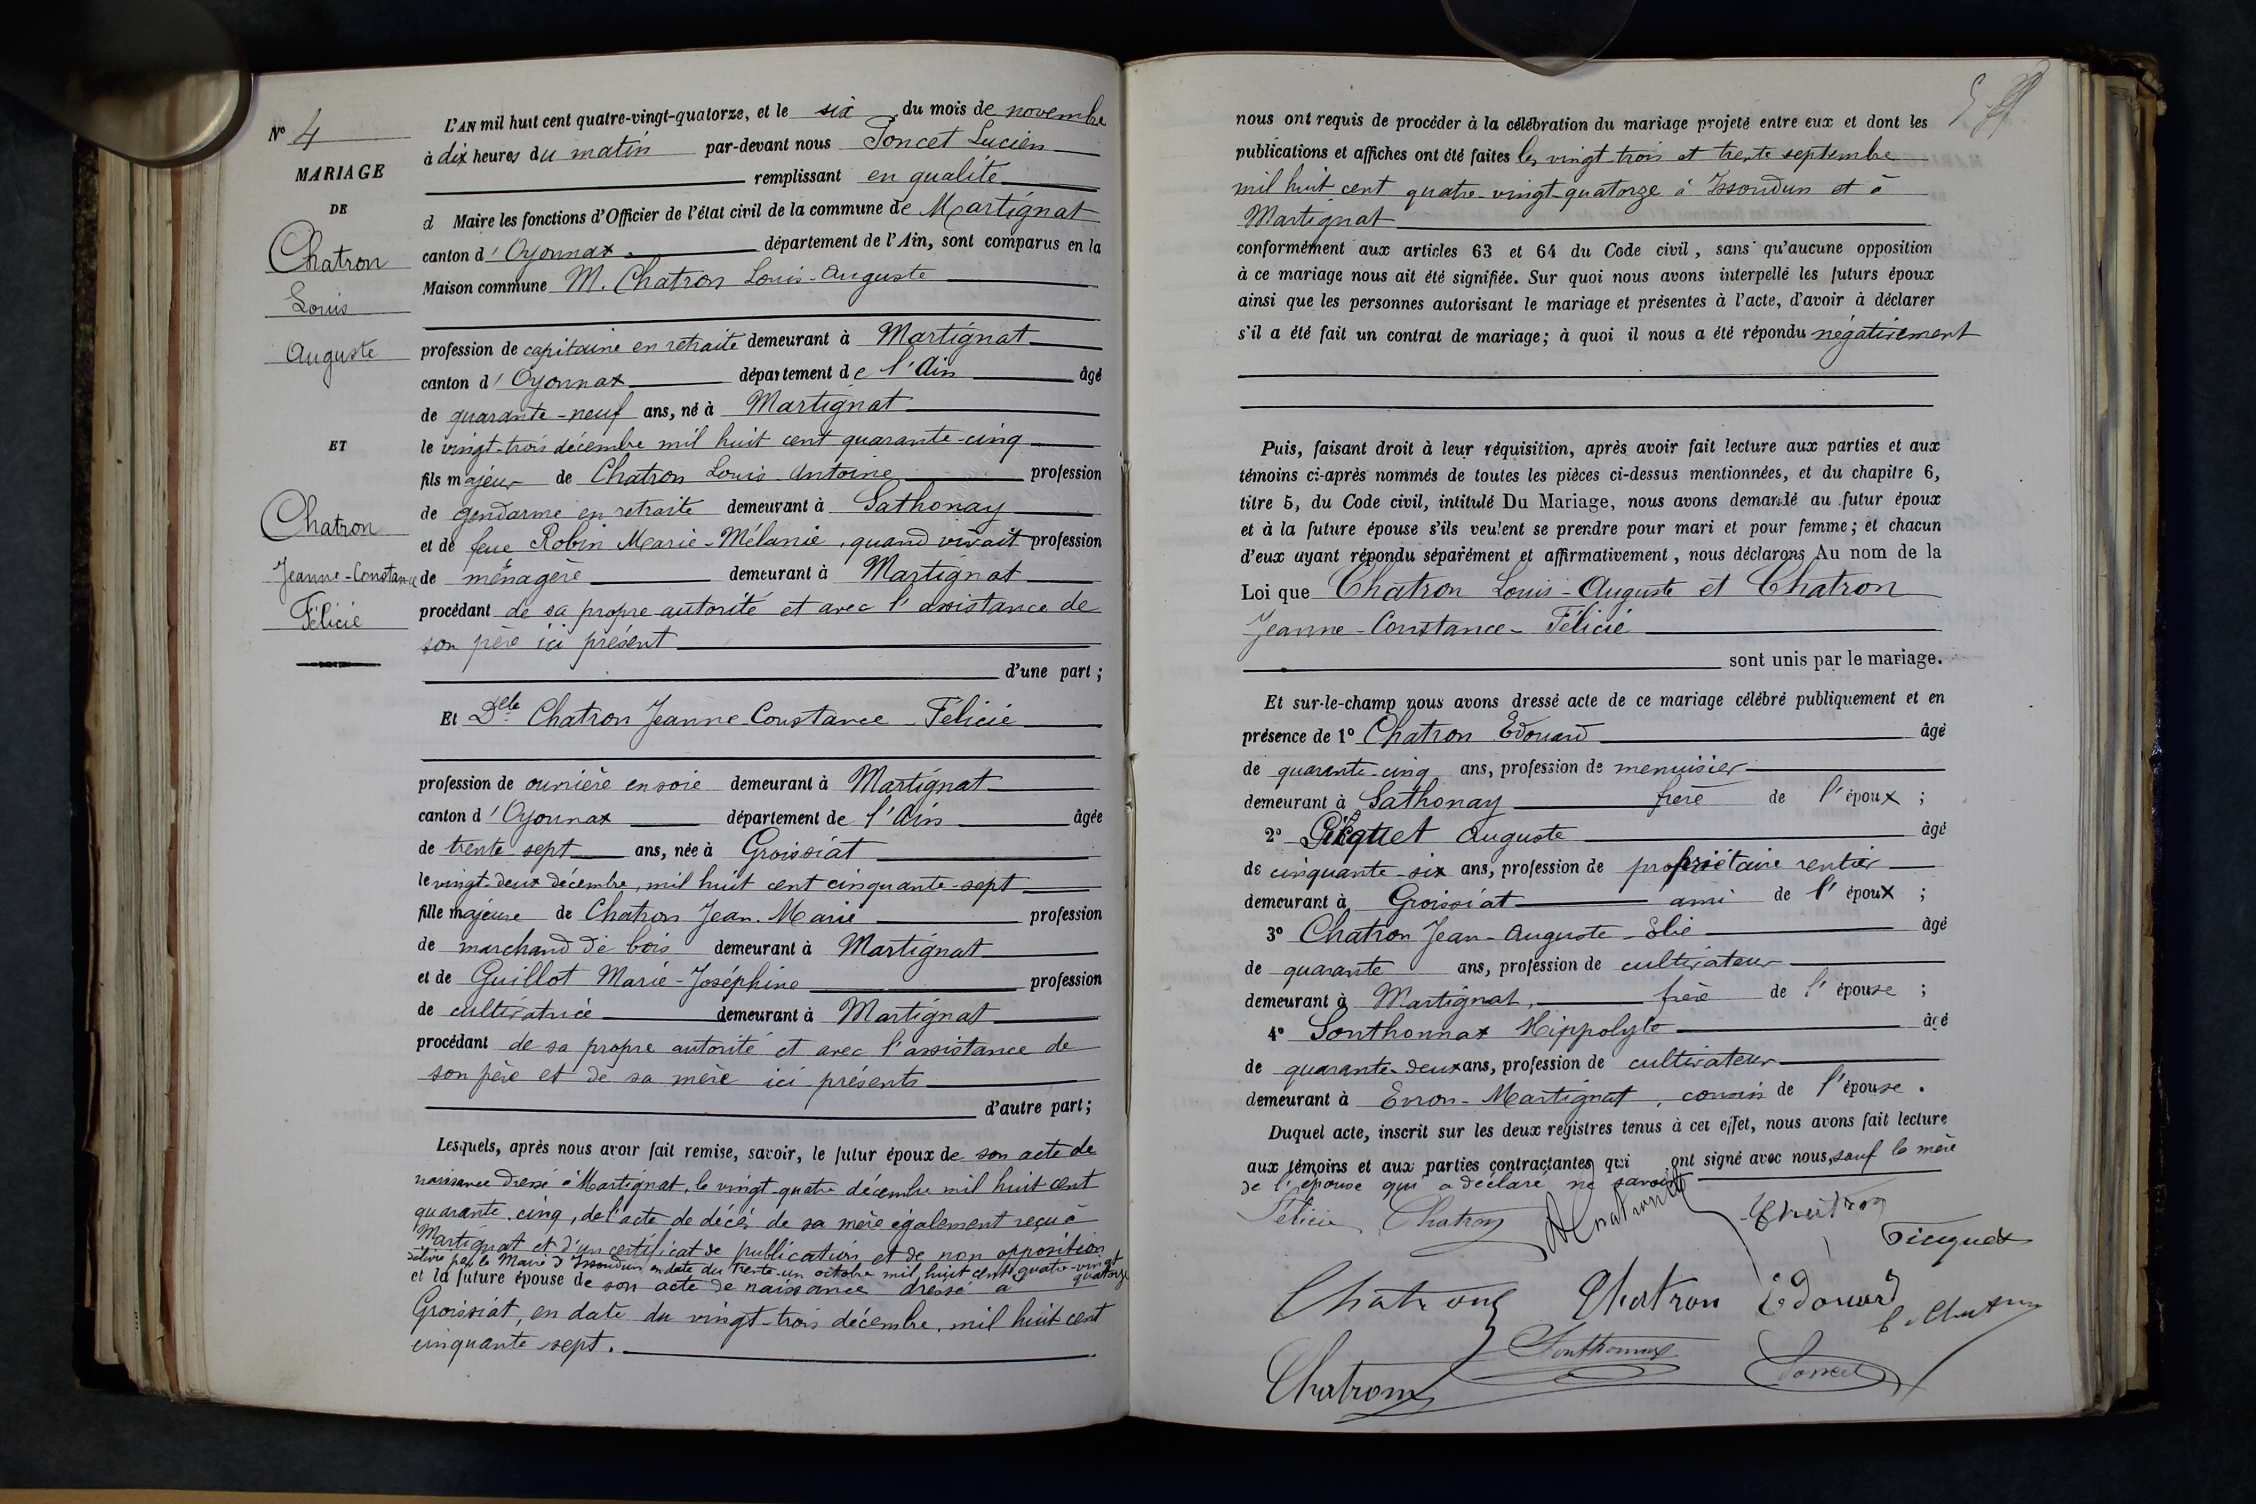 N° 4
MARIAGE
DE
Chatron
Louis
Auguste
ET
Chatron
Jeanne-Constance
Félicie
L'AN mil huit cent quatre-vingt-quatorze, et le six du mois de novembre
à dix heures du matin par-devant nous Poncet Lucien
remplissant en qualité
d Maire les fonctions d'Officier de l'état civil de la commune de Martignat
canton d'Oyonnax département de l'Ain, sont comparus en la
Maison commune M. Chatron Louis-Auguste
profession de capitaine en retraite demeurant à Martignat
canton d'Oyonnax département de l'Ain âgé
de quarante-neuf ans, né à Martignat
le vingt-trois décembre mil huit cent quarante-cinq
fils majeur de Chatron Louis-Antoine profession
de gendarme en retraite demeurant à Sathonay
et de feue Robin Marie-Mélanie, quand vivait profession
de ménagère demeurant à Martignat
procédant de sa propre autorité et avec l'assistance de
son père ici présent
d'une part;
Et Delle Chatron Jeanne-Constance-Félicie
profession de ouvrière en soie demeurant à Martignat
canton d'Oyonnax département de l'Ain âgée
de trente-sept ans, née à Groissiat
le vingt-deux décembre, mil huit cent cinquante-sept
fille majeure de Chatron Jean-Marie profession
de marchand de bois demeurant à Martignat
et de Guillot Marie-Joséphine profession
de cultivatrice demeurant à Martignat
procédant de sa propre autorité et avec l'assistance de
son père et de sa mère ici présents
d'autre part;
Lesquels, après nous avoir fait remise, savoir, le futur époux de son acte de
naissance dressé à Martignat, le vingt-quatre décembre mil huit cent
quarante-cinq, de l'acte de décès de sa mère également reçu à
Martignat et d'un certificat de publication et de non opposition
délivré par le Maire d'Issoudun en date du trente-un octobre mil huit cent quatre-vingt
quatorze
et la future épouse de son acte de naissance dressé à
Groissiat, en date du vingt-trois décembre, mil huit cent
cinquante sept.
nous ont requis de procéder à la célébration du mariage projeté entre eux et dont les
publications et affiches ont été faites les vingt-trois et trente septembre
mil huit cent quatre-vingt quatorze à Issoudun et à
Martignat
conformément aux articles 63 et 64 du Code civil, sans qu'aucune opposition
à ce mariage nous ait été signifiée. Sur quoi nous avons interpellé les futurs époux
ainsi que les personnes autorisant le mariage et présentes à l'acte, d'avoir à déclarer
s'il a été fait un contrat de mariage; à quoi il nous a été répondu négativement
Puis, faisant droit à leur réquisition, après avoir fait lecture aux parties et aux
témoins ci-après nommés de toutes les pièces ci-dessus mentionnées, et du chapitre 6,
titre 5, du Code civil, intitulé Du Mariage, nous avons demandé au futur époux
et à la future épouse s'ils veulent se prendre pour mari et pour femme; et chacun
d'eux ayant répondu séparément et affirmativement, nous déclarons Au nom de la
Loi que Chatron Louis-Auguste et Chatron
Jeanne-Constance-Félicie
sont unis par le mariage.
Et sur-le-champ nous avons dressé acte de ce mariage célébré publiquement et en
présence de 1° Chatron Edouard âgé
de quarante-cinq ans, profession de menuisier
demeurant à Sathonay frère de l'époux;
2° Auguste âgé
de cinquante-six ans, profession de propriétaire rentier
demeurant à Groissiat ami de l'époux;
3° Chatron Jean-Auguste-Elie âgé
de quarante ans, profession de cultivateur
demeurant à Martignat, frère de l'épouse;
4° Sonthonnax Hippolyte âgé
de quarante-deux ans, profession de cultivateur
demeurant à Evron-Martignat, cousin de l'épouse.
Duquel acte, inscrit sur les deux registres tenus à cet effet, nous avons fait lecture
aux témoins et aux parties contractantes qui ont signé avec nous, sauf la mère
de l'épouse qui a déclaré ne savoir
Félicie Chatron
Chatron
Chatron Chatron Edouard
Sonthonnax
Chatron Poncet